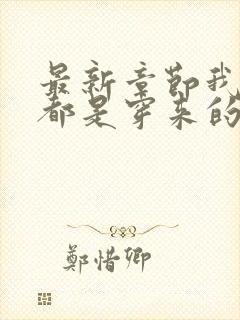 最新章节我
都是穿来的
鄭惜卿